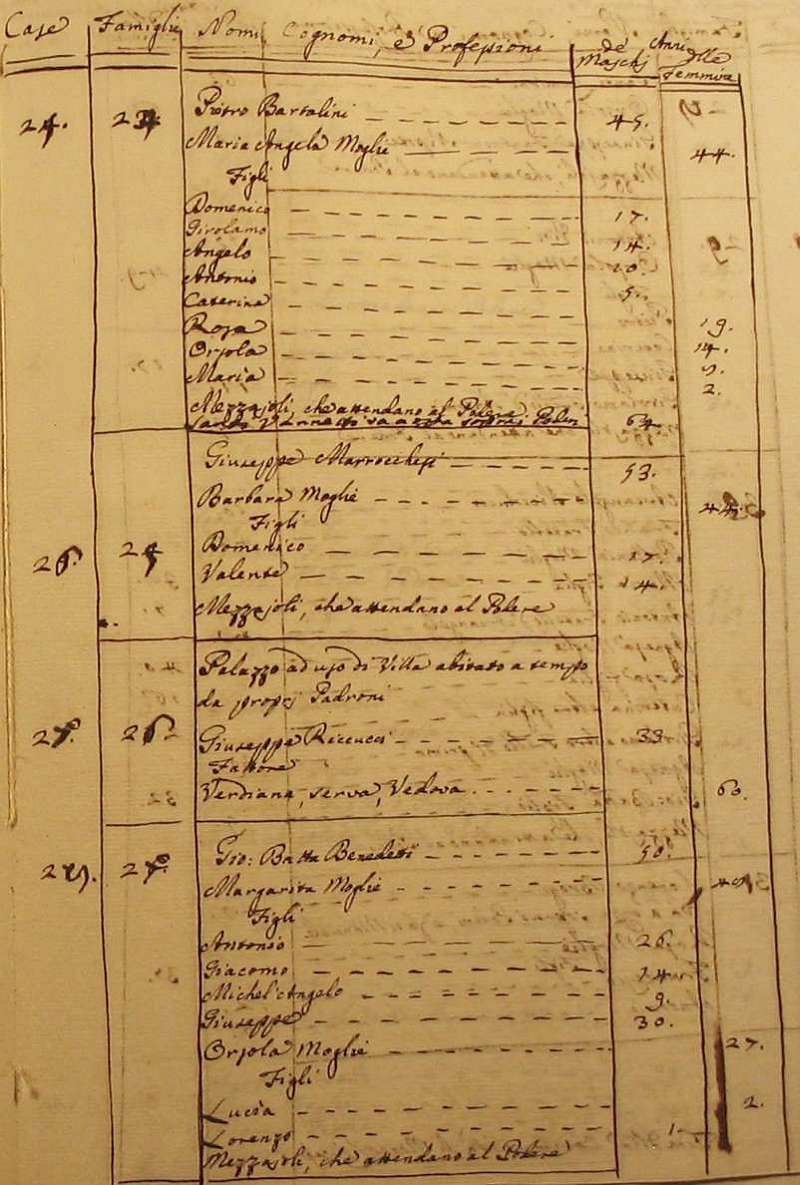 Case Famiglie Nomi, Cognomi, e Professioni de Maschj Anni delle Femmine
24. Pietro Bartalini 45.
Maria Angela Moglie 44.
Figli
Domenico 17.
Girolamo 14.
Angelo 10.
Antonio 5.
Caterina 19.
Rosa 14.
Orsola
Maria 2.
Mezzajoli, che attendano al Podere
64.
Giuseppe Marrocchesi 53.
Barbara Moglie
Figli
Domenico 17.
Valente 14.
Mezzajoli, che attendano al Podere
Palazzo ad uso di Villa abitato a tempo
da proprj Padroni
26. Giuseppe Riccucci 33
Fattore
Verdiana, serva, Vedova 60.
Gio: Batta Benedetti 50.
Margarita Moglie
Figli
Antonio 26.
Giacomo 14
Michel'Angelo 9.
Giuseppe 30.
Orsola Moglie 27.
Figli
Lucia 2.
Lorenzo 1
Mezzajoli, che attendano al Podere